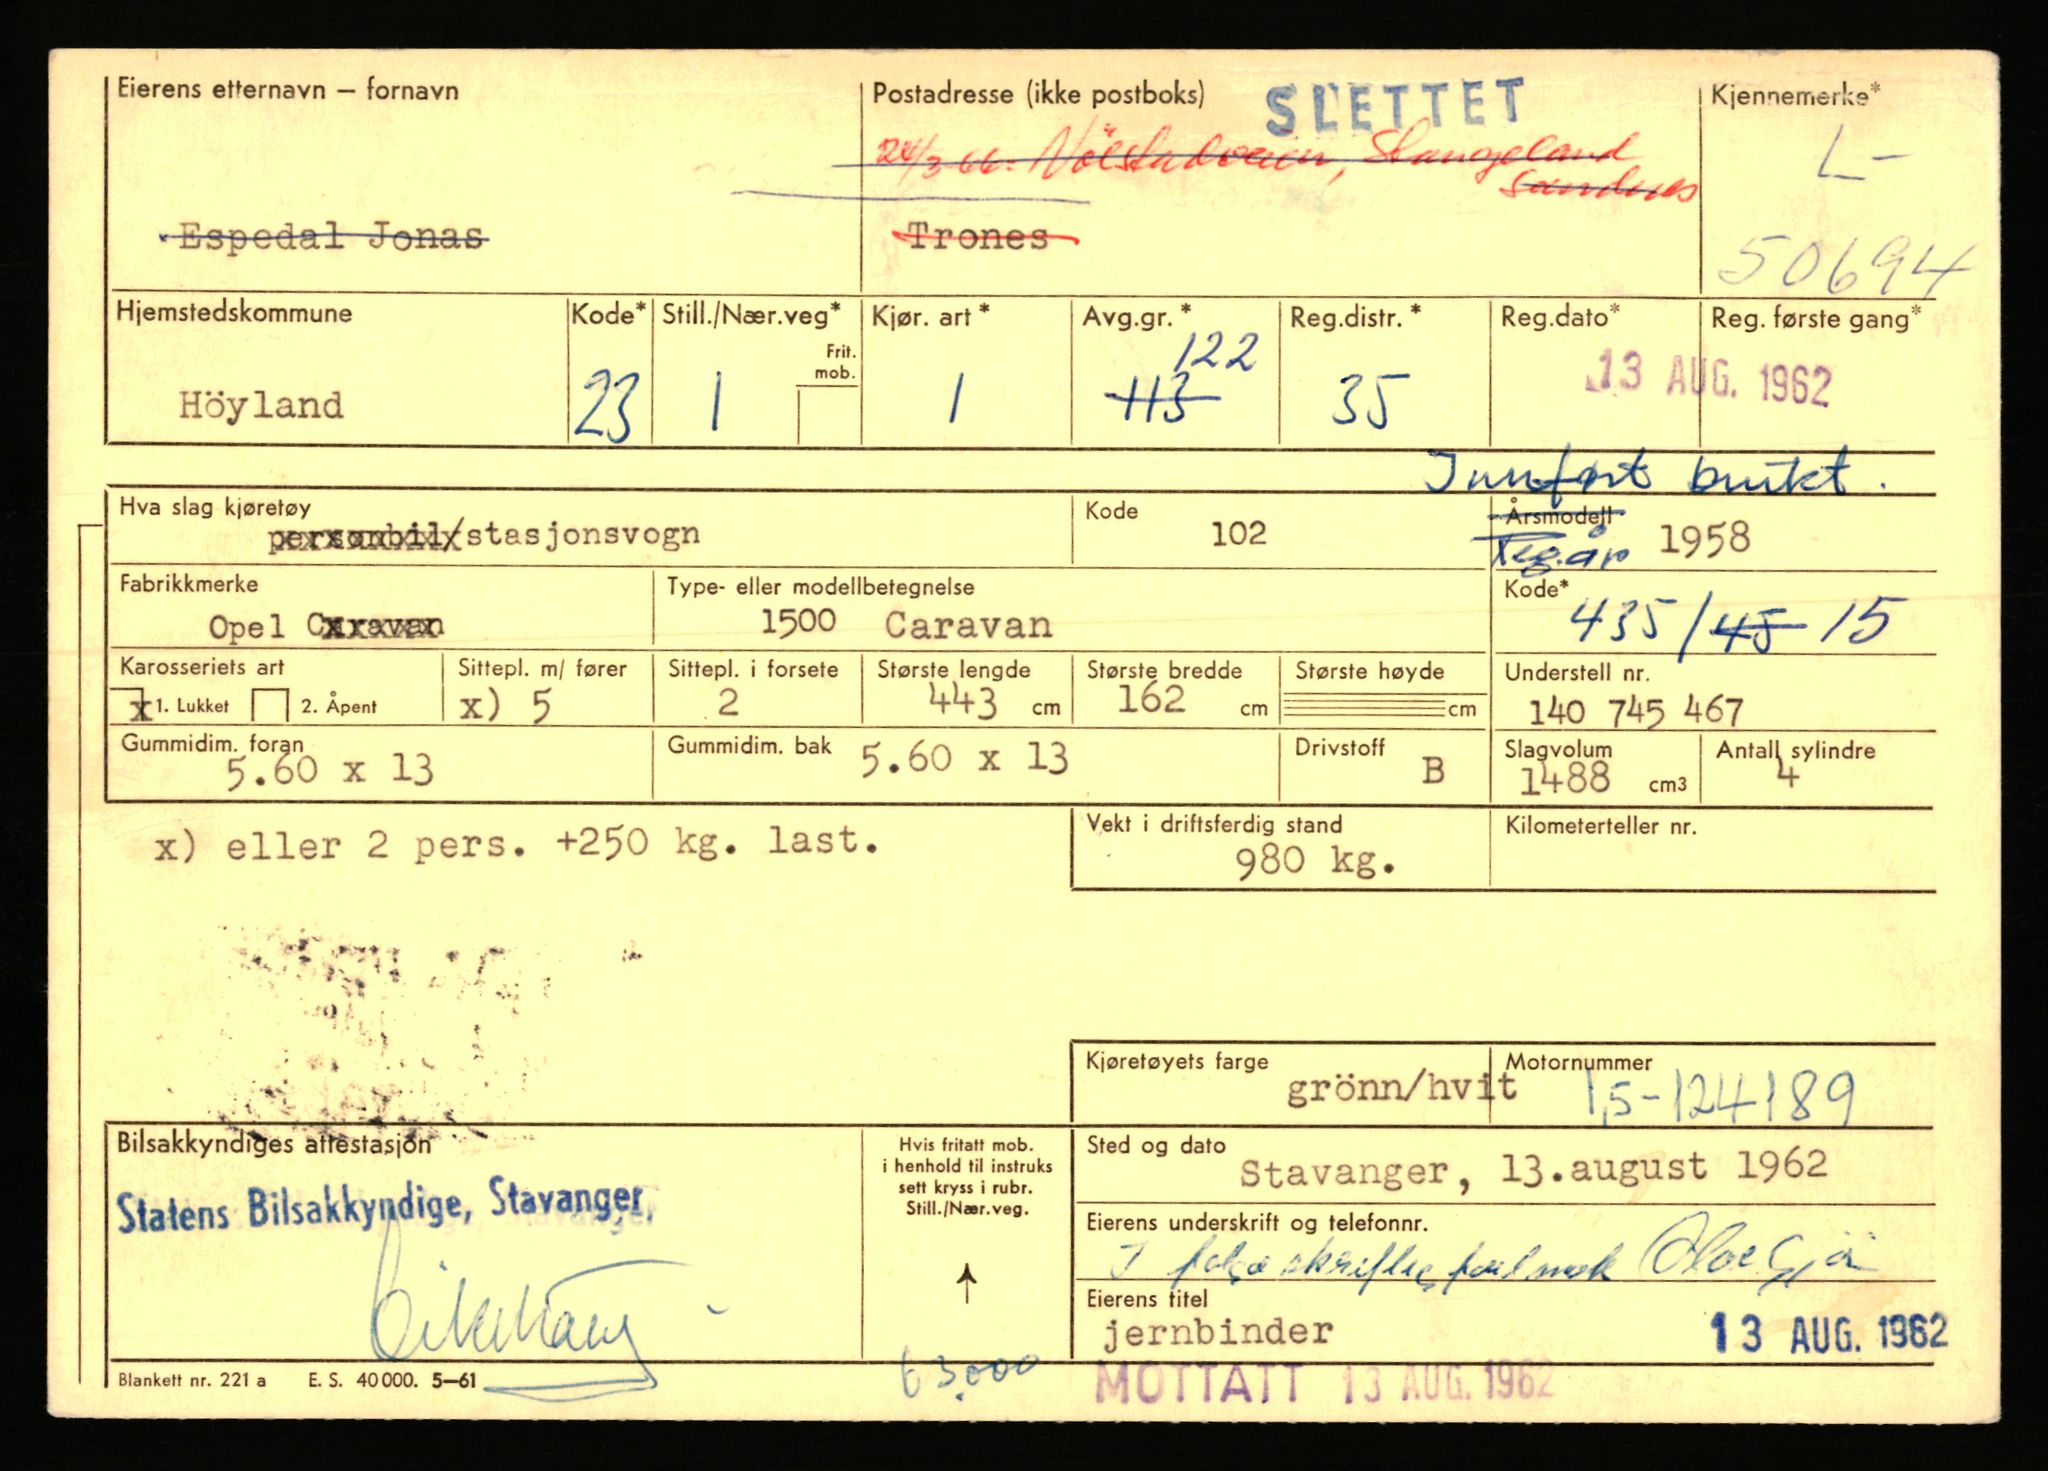 Eierens etternavn – fornavn
Postadresse (ikke postboks)
SLETTET
Kjennemerke*
24/3 66. Stangeland
Sandnes
L-
Espedal Jonas
Trones
50694
Hjemstedskommune
Kode*
Still./Nær.veg*
Frit. mob.
Kjør. art *
Avg.gr. *
Reg.distr. *
Reg.dato*
Reg. første gang*
122
Höyland
23
1
1
113
35
13 AUG. 1962
Innført brukt.
Hva slag kjøretøy
personbil/stasjonsvogn
Kode
102
Årsmodell
Reg.år
1958
Fabrikkmerke
Opel Caravan
Type- eller modellbetegnelse
1500 Caravan
Kode*
435/45 15
Karosseriets art
x 1. Lukket 2. Åpent
Sittepl. m/ fører
x) 5
Sittepl. i forsete
2
Største lengde
443 cm
Største bredde
162 cm
Største høyde
cm
Understell nr.
140 745 467
Gummidim. foran
5.60 x 13
Gummidim. bak
5.60 x 13
Drivstoff
B
Slagvolum
1488 cm3
Antall sylindre
4
x) eller 2 pers. +250 kg. last.
Vekt i driftsferdig stand
980 kg.
Kilometerteller nr.
Kjøretøyets farge
grönn/hvit
Motornummer
1,5-124189
Bilsakkyndiges attestasjon
Statens Bilsakkyndige, Stavanger.
Hvis fritatt mob.
i henhold til instruks
sett kryss i rubr.
Still./Nær.veg.
Sted og dato
Stavanger, 13.august 1962
Eierens underskrift og telefonnr.
I følge skriftlig
Eierens titel
jernbinder
13 AUG. 1962
Blankett nr. 221 a E. S. 40 000. 5–61
63.000
MOTTATT 13 AUG. 1962